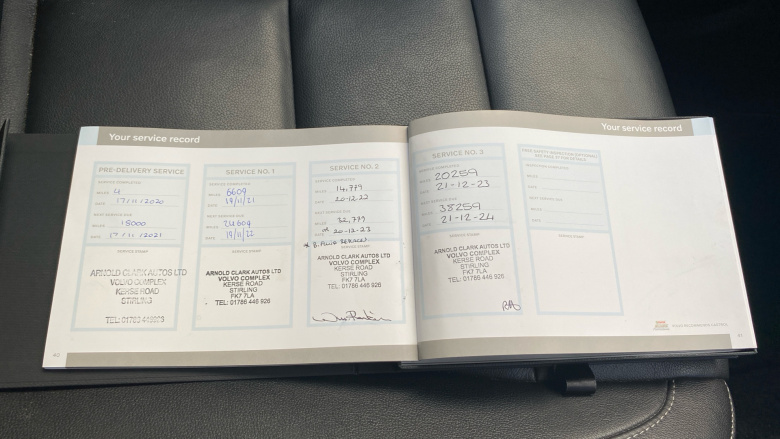 Your service record
PRE-DELIVERY SERVICE
SERVICE COMPLETED
MILES 4
DATE 17/11/2020
NEXT SERVICE DUE
MILES 18000
DATE 17/11/2021
SERVICE STAMP
ARNOLD CLARK AUTOS LTD
VOLVO COMPLEX
KERSE ROAD
STIRLING
TEL: 01786
SERVICE NO. 1
SERVICE COMPLETED
MILES 6609
DATE 19/11/21
NEXT SERVICE DUE
MILES 24609
DATE 19/11/22
SERVICE STAMP
ARNOLD CLARK AUTOS LTD
VOLVO COMPLEX
KERSE ROAD
STIRLING
FK7 7LA
TEL: 01786 446 926
SERVICE NO. 2
SERVICE COMPLETED
MILES 14,779
DATE 20-12-22
NEXT SERVICE DUE
MILES 32,779
DATE 20-12-23
SERVICE STAMP
ARNOLD CLARK AUTOS LTD
VOLVO COMPLEX
KERSE ROAD
STIRLING
FK7 7LA
TEL: 01786 446 926
40
Your service record
SERVICE NO. 3
SERVICE COMPLETED
MILES 20259
DATE 21-12-23
NEXT SERVICE DUE
MILES 38259
DATE 21-12-24
SERVICE STAMP
ARNOLD CLARK AUTOS LTD
VOLVO COMPLEX
KERSE ROAD
STIRLING
FK7 7LA
TEL: 01786 446 926
SERVICE COMPLETED
MILES
DATE
NEXT SERVICE DUE
MILES
DATE
SERVICE STAMP